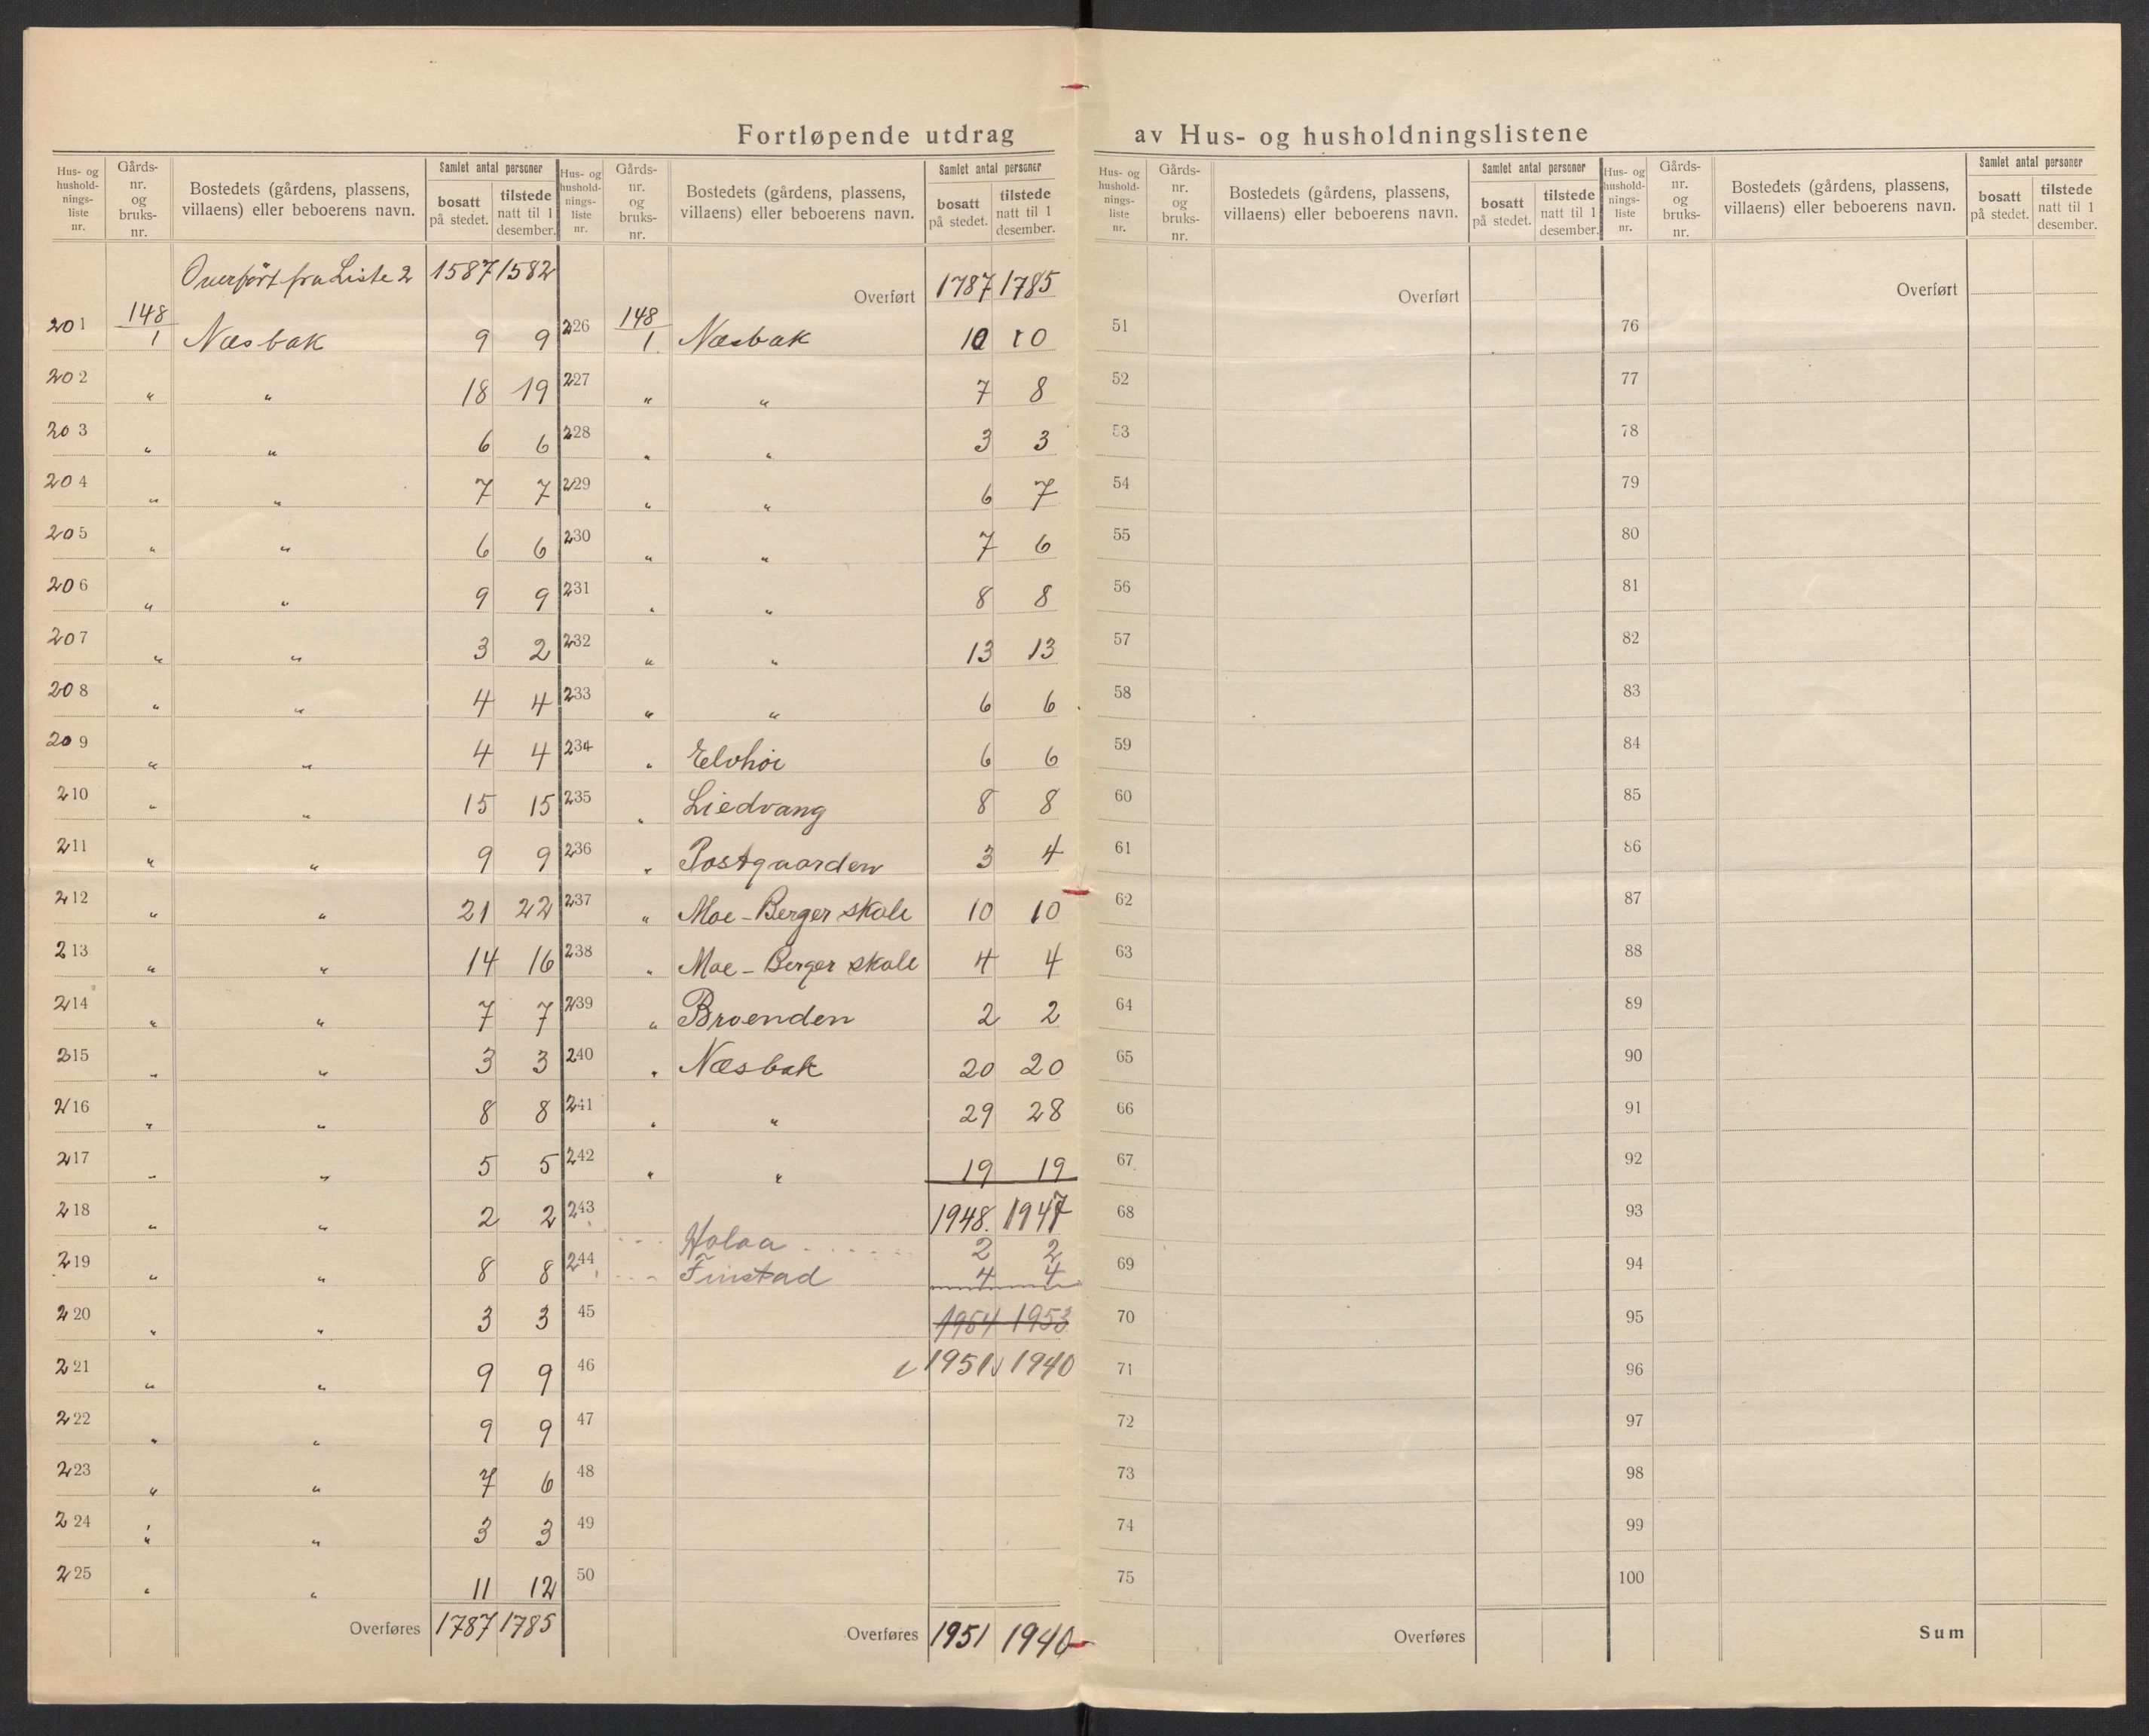 Fortløpende utdrag av Hus- og husholdningslistene
Hus- og hushold-nings-liste nr. Gårds-nr. og bruks-nr. Bostedets (gårdens, plassens, villaens) eller beboerens navn. Samlet antal personer bosatt på stedet. tilstede natt til 1 desember.
Overført fra Liste 2 1587 1582
201 148/1 Næsbak 9 9
202 " " 18 19
203 " " 6 6
204 " " 7 7
205 " " 6 6
206 " " 9 9
207 " " 3 2
208 " " 4 4
209 " " 4 4
210 " " 15 15
211 " " 9 9
212 " " 21 22
213 " " 14 16
214 " " 7 7
215 " " 3 3
216 " " 8 8
217 " " 5 5
218 " " 2 2
219 " " 8 8
220 " " 3 3
221 " " 9 9
222 " " 9 9
223 " " 7 6
224 " " 3 3
225 " " 11 12
Overføres 1787 1785
Hus- og hushold-nings-liste nr. Gårds-nr. og bruks-nr. Bostedets (gårdens, plassens, villaens) eller beboerens navn. Samlet antal personer bosatt på stedet. tilstede natt til 1 desember.
Overført 1787 1785
226 148/1 Næsbak 10 10
227 " " 7 8
228 " " 3 3
229 " " 6 7
230 " " 7 6
231 " " 8 8
232 " " 13 13
233 " " 6 6
234 " Elvhøi 6 6
235 " Liedvang 8 8
236 " Postgaarden 3 4
237 " Moe-Berger skole 10 10
238 " Moe-Berger skole 4 4
239 " Broenden 2 2
240 " Næsbak 20 20
241 " " 29 28
242 " " 19 19
243 1948. 1947
Holaa 2 2
244 Finstad 4 4
45 1954 1953
46 1951 1940
47
48
49
50
Overføres 1951 1940
Hus- og hushold-nings-liste nr. Gårds-nr. og bruks-nr. Bostedets (gårdens, plassens, villaens) eller beboerens navn. Samlet antal personer bosatt på stedet. tilstede natt til 1 desember.
Overført
51
52
53
54
55
56
57
58
59
60
61
62
63
64
65
66
67
68
69
70
71
72
73
74
75
Overføres
Hus- og hushold-nings-liste nr. Gårds-nr. og bruks-nr. Bostedets (gårdens, plassens, villaens) eller beboerens navn. Samlet antal personer bosatt på stedet. tilstede natt til 1 desember.
Overført
76
77
78
79
80
81
82
83
84
85
86
87
88
89
90
91
92
93
94
95
96
97
98
99
100
Sum